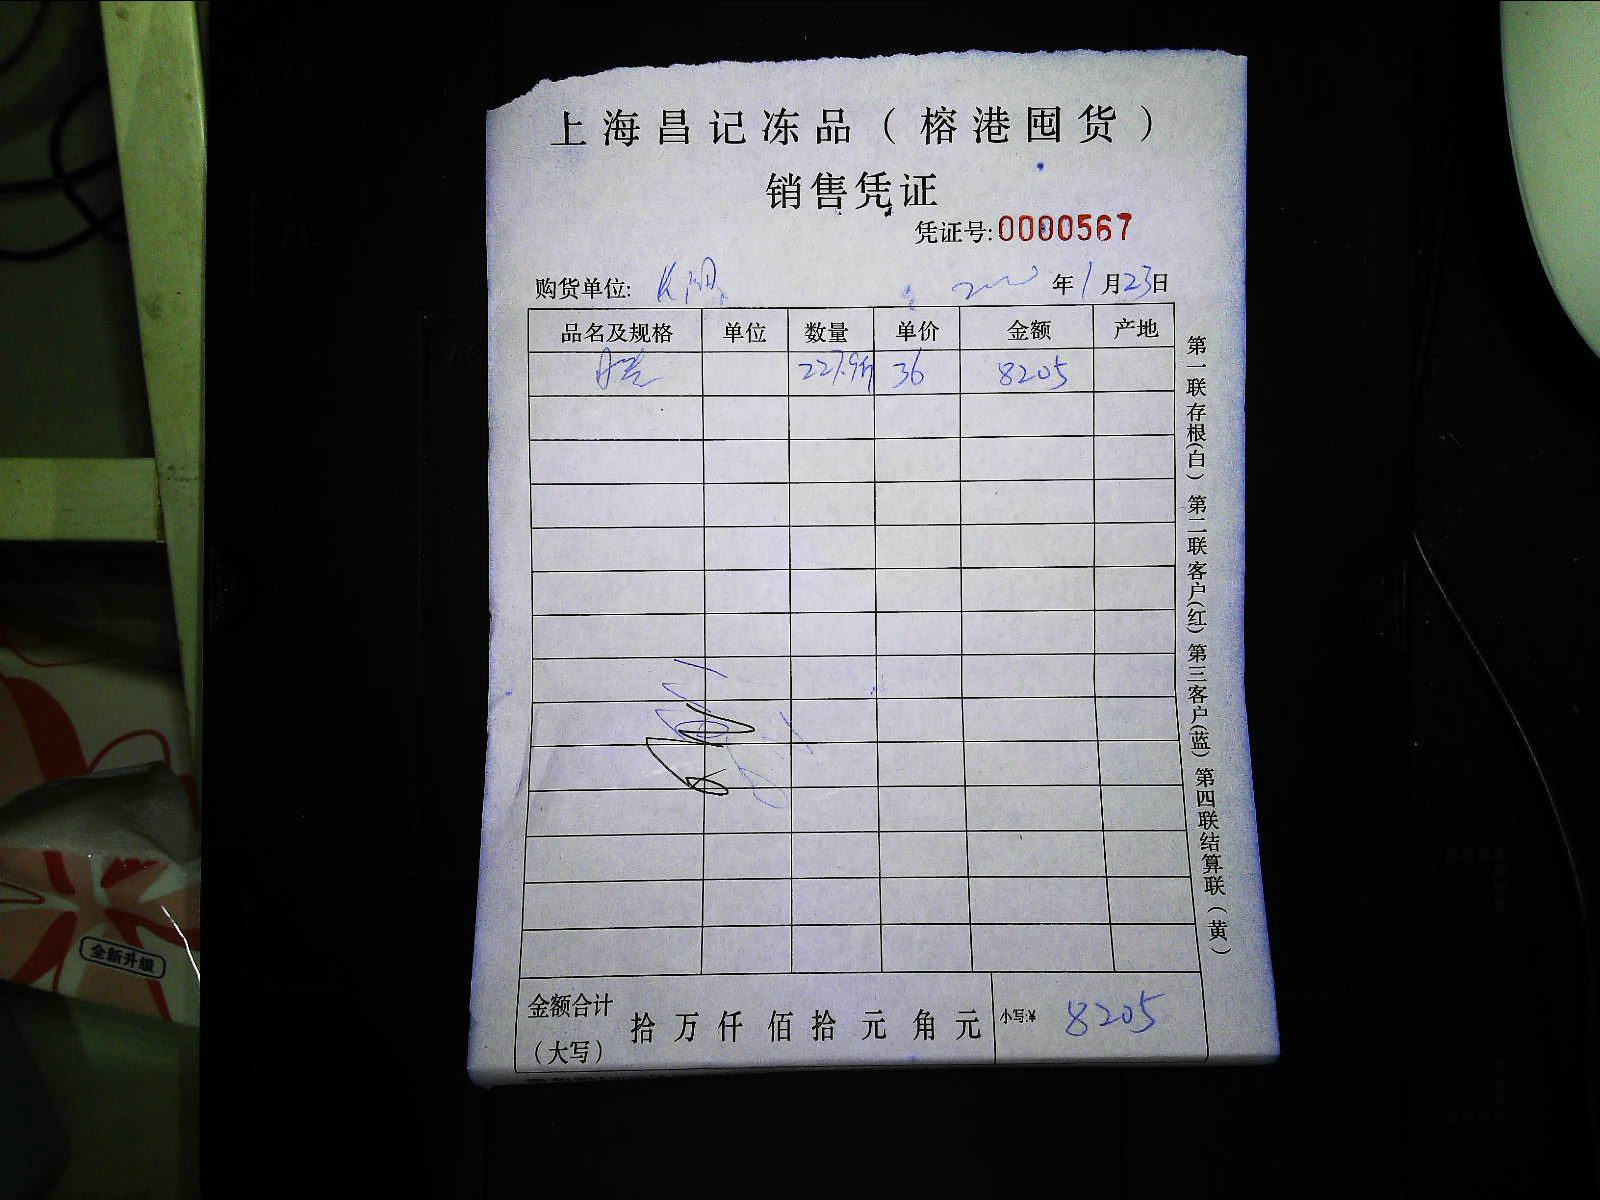 上海昌记冻品（榕港囤货）
销售凭证
凭证号:0000567
购货单位: 年1月23日
品名及规格 单位 数量 单价 金额 产地
227.9斤 36 8205
金额合计（大写） 拾 万 仟 佰 拾 元 角 元 小写:¥ 8205
第一联存根(白) 第二联客户(红) 第三客户(蓝) 第四联结算联(黄)
全新升级